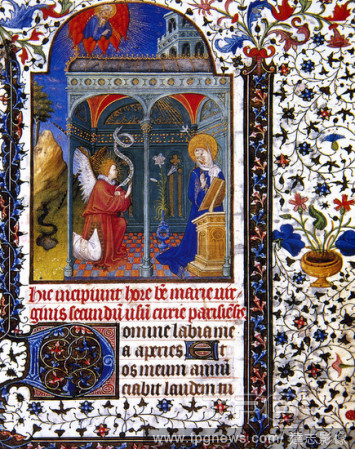 Hic incipiunt hore bē marie uir
ginis secundū usū curie parisiēs
Domine labia me
a aperies. Et
os meum annū
ciabit laudem tu
www.tpgnews.com/ 達志影像